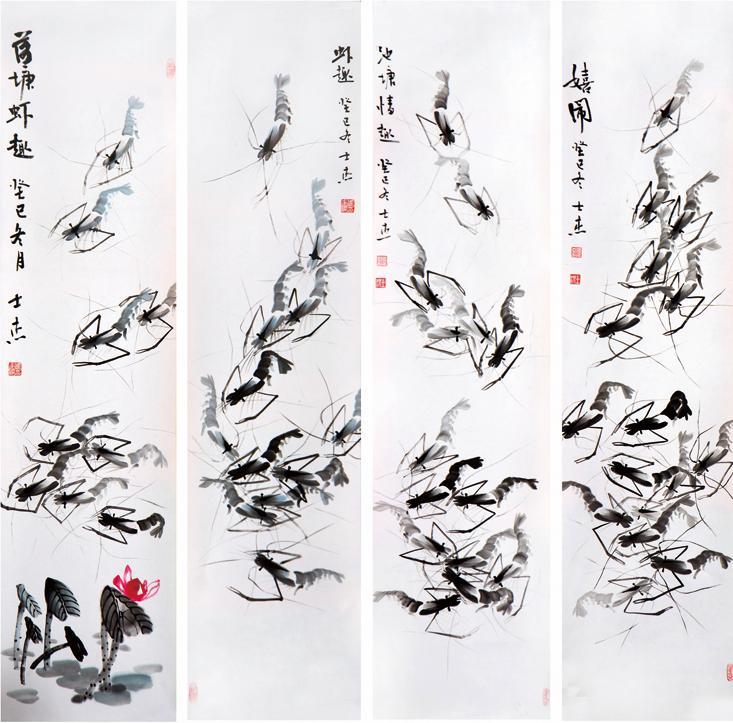 荷塘虾趣 癸巳冬月 士杰
虾趣 癸巳冬 士杰
池塘情趣 癸巳冬 士杰
嬉闹 癸巳冬 士杰